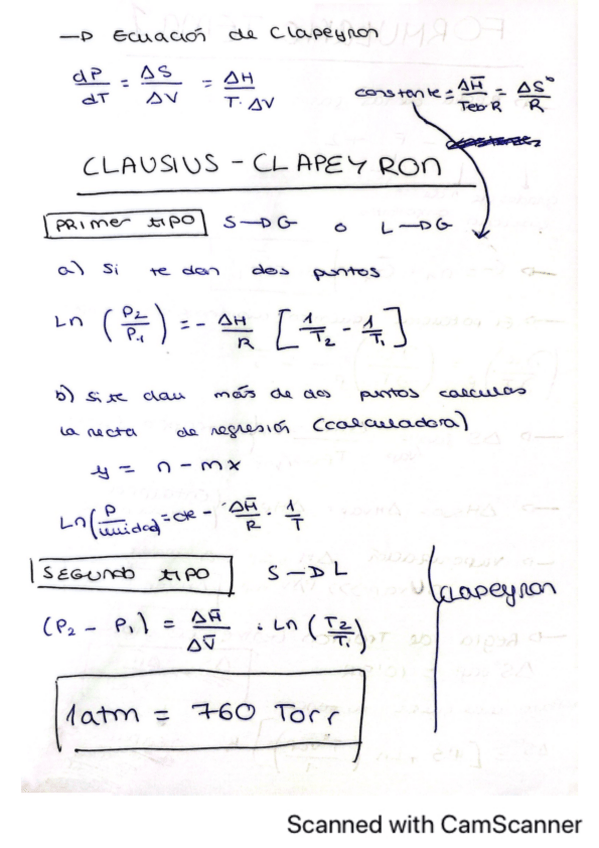 —D Ecuación de Clapeyron
dP/dT = ΔS/ΔV = ΔH/T·ΔV
constante = ΔH̅/Teb·R = ΔS°/R
CLAUSIUS - CLAPEYRON
PRIMER TIPO S—DG o L—DG
a) Si te dan dos puntos
Ln (P2/P1) = - ΔH/R [1/T2 - 1/T1]
b) Si te dan más de dos puntos calculas
la recta de regresión (calculadora)
y = n - mx
Ln(P/unidad) = cte - ΔH̅/R · 1/T
SEGUNDO TIPO S—DL
(P2 - P1) = ΔH̅/ΔV̅ · Ln (T2/T1)
Clapeyron
1atm = 760 Torr
Scanned with CamScanner